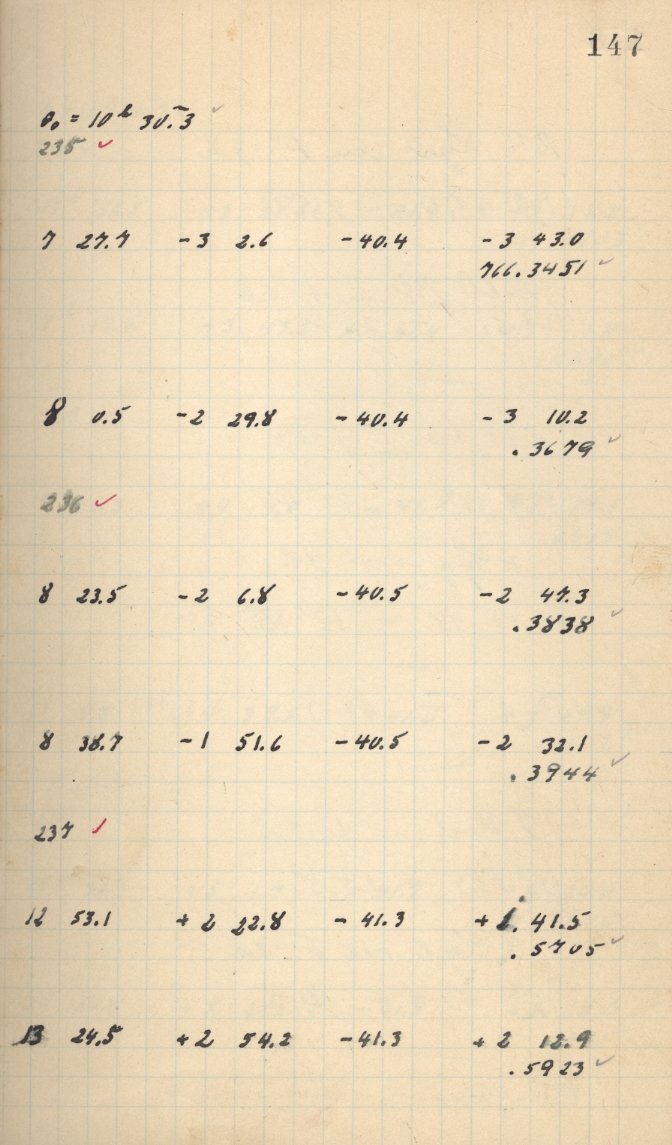 147
θ₀ = 10ʰ 30.ᵐ3 ✓
235 ✓
7 27.7 -3 2.6 -40.4 -3 43.0
766.3451 ✓
8 0.5 -2 29.8 -40.4 -3 10.2
.3679 ✓
236 ✓
8 23.5 -2 6.8 -40.5 -2 47.3
.3838 ✓
8 38.7 -1 51.6 -40.5 -2 32.1
.3944 ✓
237 ✓
12 53.1 +2 22.8 -41.3 +1. 41.5
.5705 ✓
13 24.5 +2 54.2 -41.3 +2 12.9
.5923 ✓